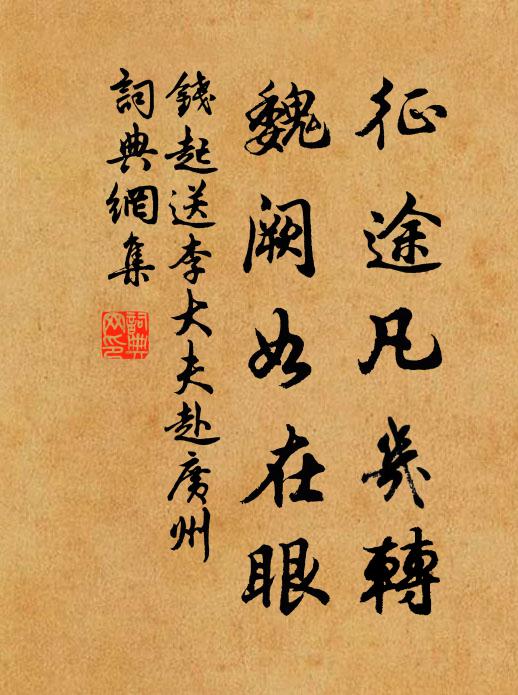 征途凡幾轉
魏闕如在眼
錢起送李大夫赴廣州
詞典網集
詞典
网印